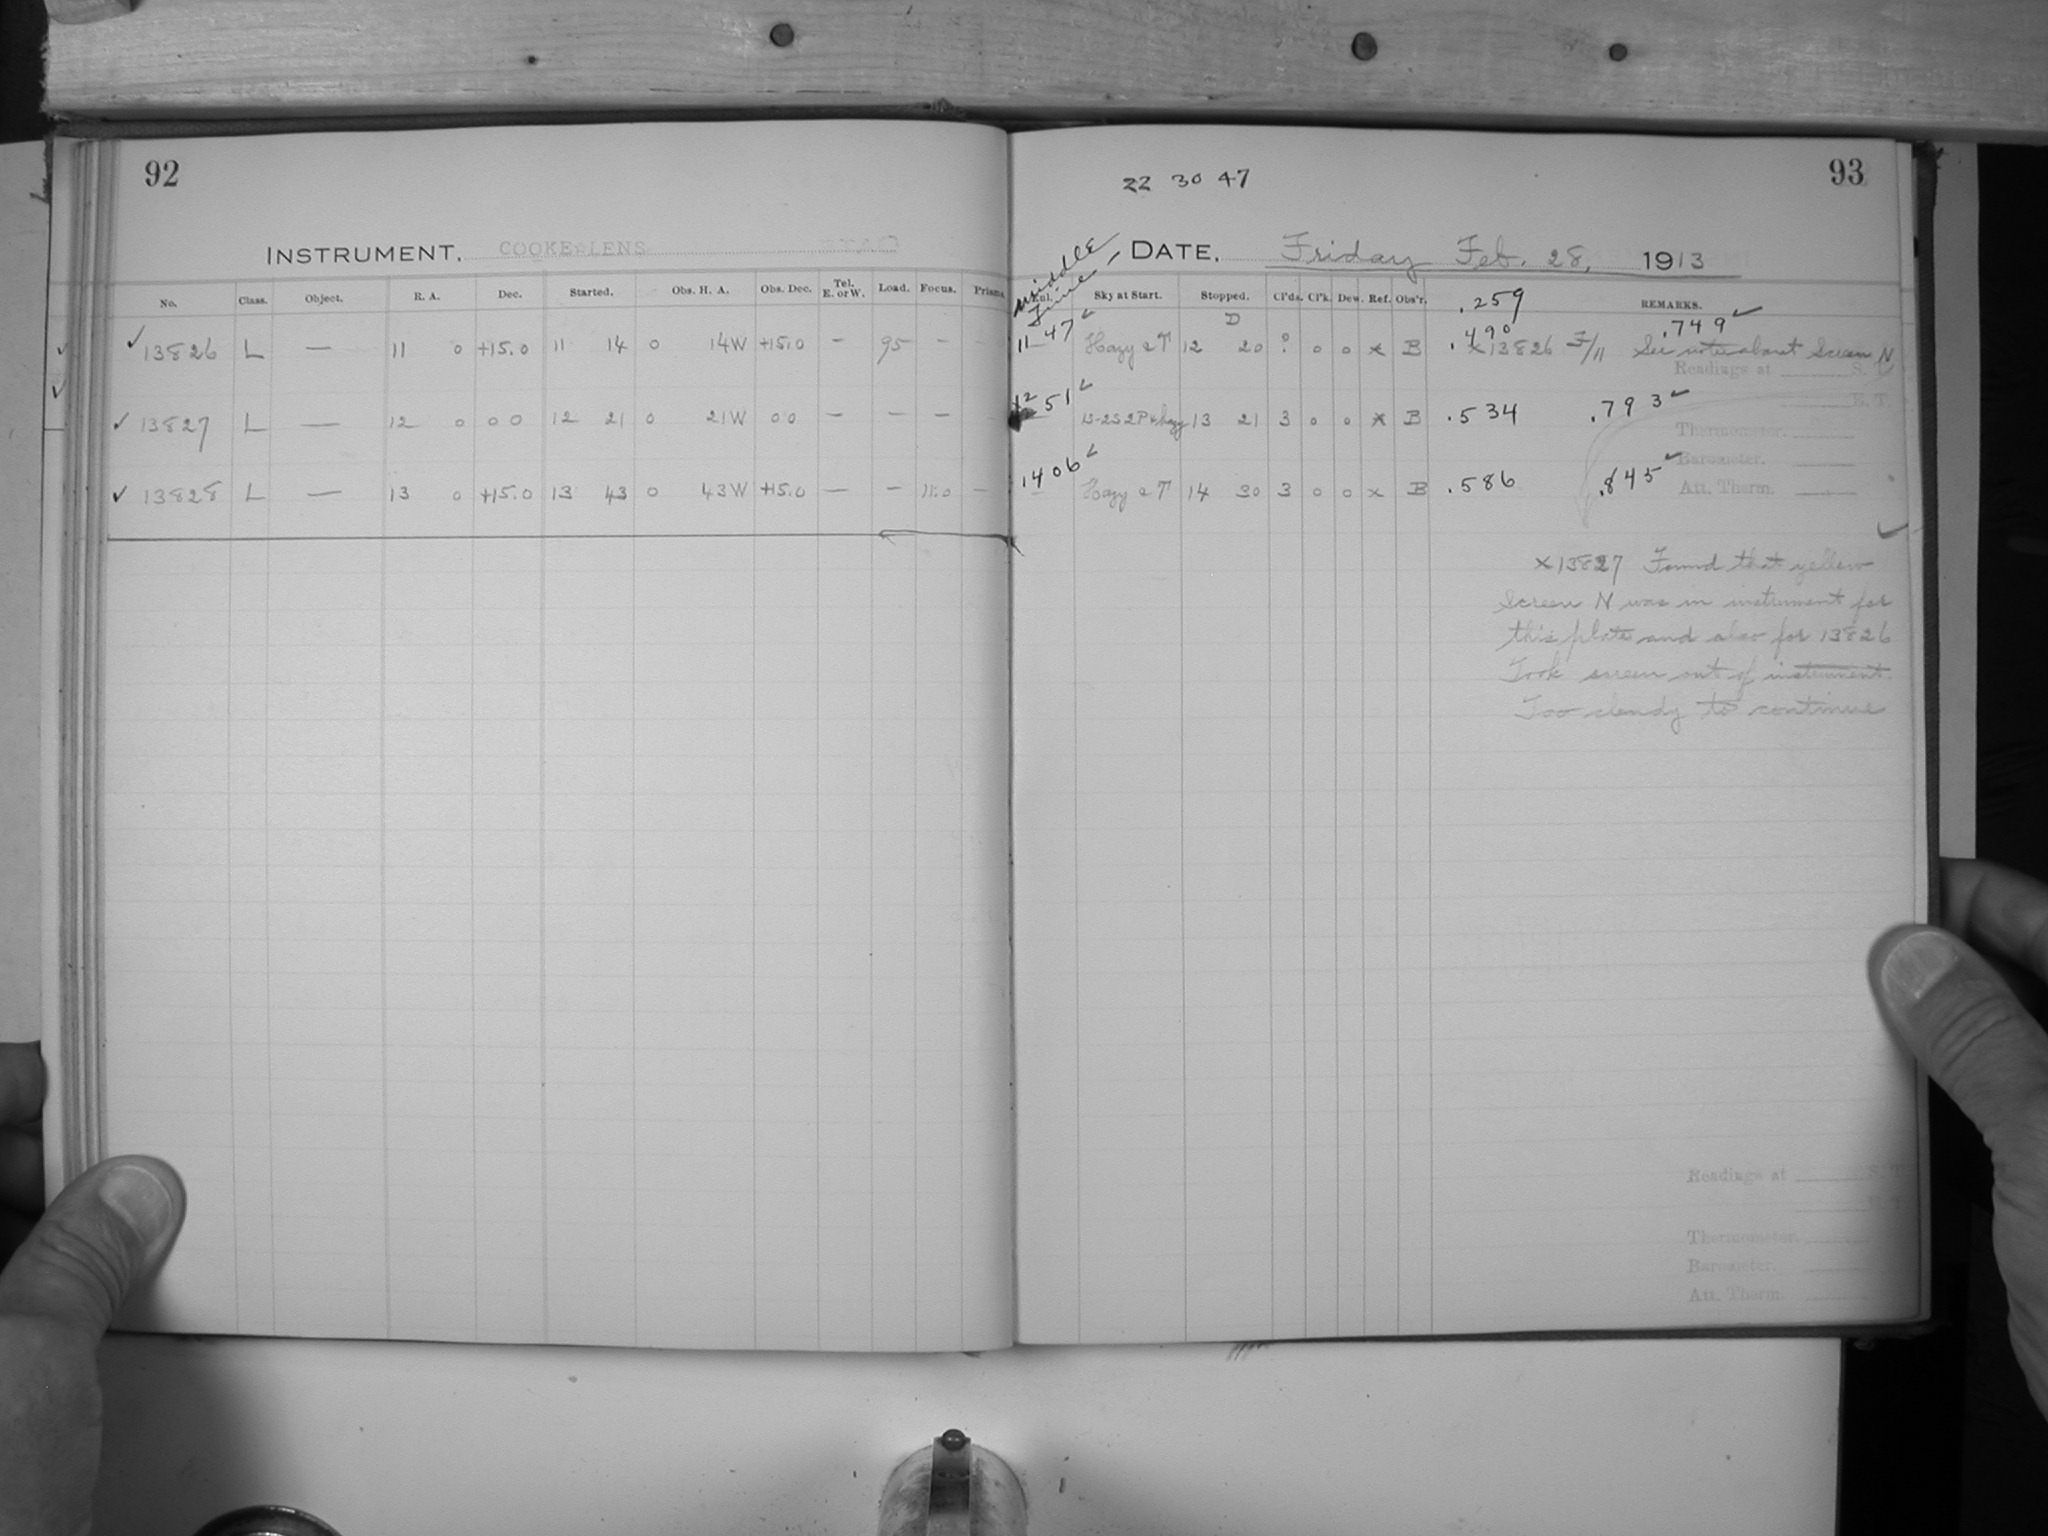 92
INSTRUMENT. COOKE LENS
No. Class. Object. R. A. Dec. Started. Obs. H. A. Obs. Dec. Tel. E. or W. Load. Focus. Prisms.
13826 L — 11 0 +15.0 11 14 0 14W +15.0 — 95 — —
13827 L — 12 0 0 0 12 21 0 21W 0 0 — — — —
13828 L — 13 0 +15.0 13 43 0 43W +15.0 — — 11.0 —
93
22 30 47
Middle Time
DATE. Friday Feb. 28, 1913
Sky at Start. Stopped. Cl'ds. Cl'k. Dew. Ref. Obs'r. .259 REMARKS.
D .490 .749
11 47 Hazy & T 12 20 ? 0 0 x B x13826 F/11 See note about Screen N
Readings at S. T.
12 51 13 21 3 0 0 x B .534 .793
Thermometer.
Barometer.
14 06 Hazy & T 14 30 3 0 0 x B .586 .845
Att. Therm.
x13827 Found that yellow
Screen N was in instrument for
this plate and also for 13826
Took screen out of instrument.
Too cloudy to continue
Readings at S. T.
Thermometer.
Barometer.
Att. Therm.